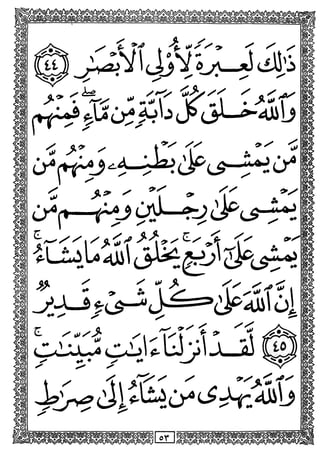 ذَٰلِكَ لَعِبْرَةً لِّأُوْلِي ٱلْأَبْصَٰرِ ٤٤
وَٱللَّهُ خَلَقَ كُلَّ دَآبَّةٍ مِّن مَّآءٍۖ فَمِنْهُم
مَّن يَمْشِى عَلَىٰ بَطْنِهِۦ وَمِنْهُم مَّن
يَمْشِى عَلَىٰ رِجْلَيْنِ وَمِنْهُم مَّن
يَمْشِى عَلَىٰٓ أَرْبَعٍۚ يَخْلُقُ ٱللَّهُ مَا يَشَآءُۚ
إِنَّ ٱللَّهَ عَلَىٰ كُلِّ شَىْءٍ قَدِيرٌ
٤٥ لَّقَدْ أَنزَلْنَآ ءَايَٰتٍ مُّبَيِّنَٰتٍۚ
وَٱللَّهُ يَهْدِى مَن يَشَآءُ إِلَىٰ صِرَٰطٍ
٥٣